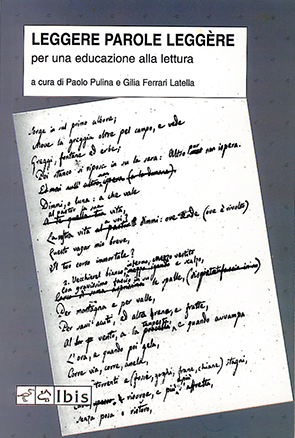 LEGGERE PAROLE LEGGÈRE
per una educazione alla lettura
a cura di Paolo Pulina e Gilia Ferrari Latella
Sorge in sul primo albore;
Move la greggia oltre pel campo, e vede
Greggi, fontane ed erbe;
Poi stanco si riposa in su la sera: Altro mai non ispera.
Dimmi, o luna: a che vale
al pastor sua vita,
La vostra vita a voi? dimmi: ove tende
Questo vagar mio breve,
Il tuo corso immortale?
2. Vecchierel bianco, infermo, mezzo vestito
le spalle,
Per montagna e per valle,
Per sassi acuti, ed alta arena, e fratte,
Al vento, a la tempesta, e quando avvampa
L'ora, e quando poi gela,
Corre via, corre, anela,
torrenti e stagni,
e più
senza posa o ristoro,
Ibis